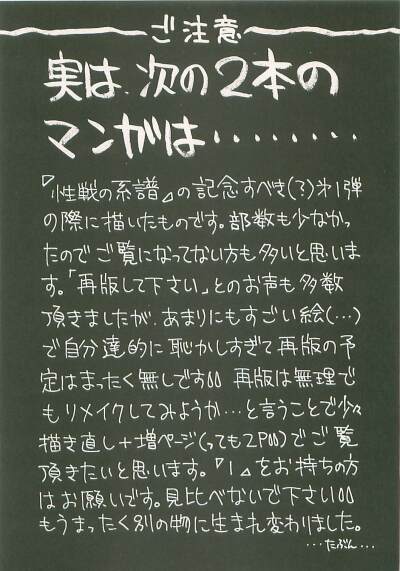 ご注意
実は、次の2本の
マンガは‥‥‥‥
『性戦の系譜』の記念すべき(?)第1弾
の際に描いたものです。部数も少なかっ
たのでご覧になってない方も多いと思いま
す。「再版して下さい」とのお声も多数
頂きましたが、あまりにもすごい絵(…)
で自分達的に恥かしすぎて再版の予
定はまったく無しです。 再版は無理で
もリメイクしてみようか…と言うことで少々
描き直し+増ページ(っても2P)でご覧
頂きたいと思います。『1』をお持ちの方
はお願いです。見比べないで下さい
もうまったく別の物に生まれ変わりました。
…たぶん…